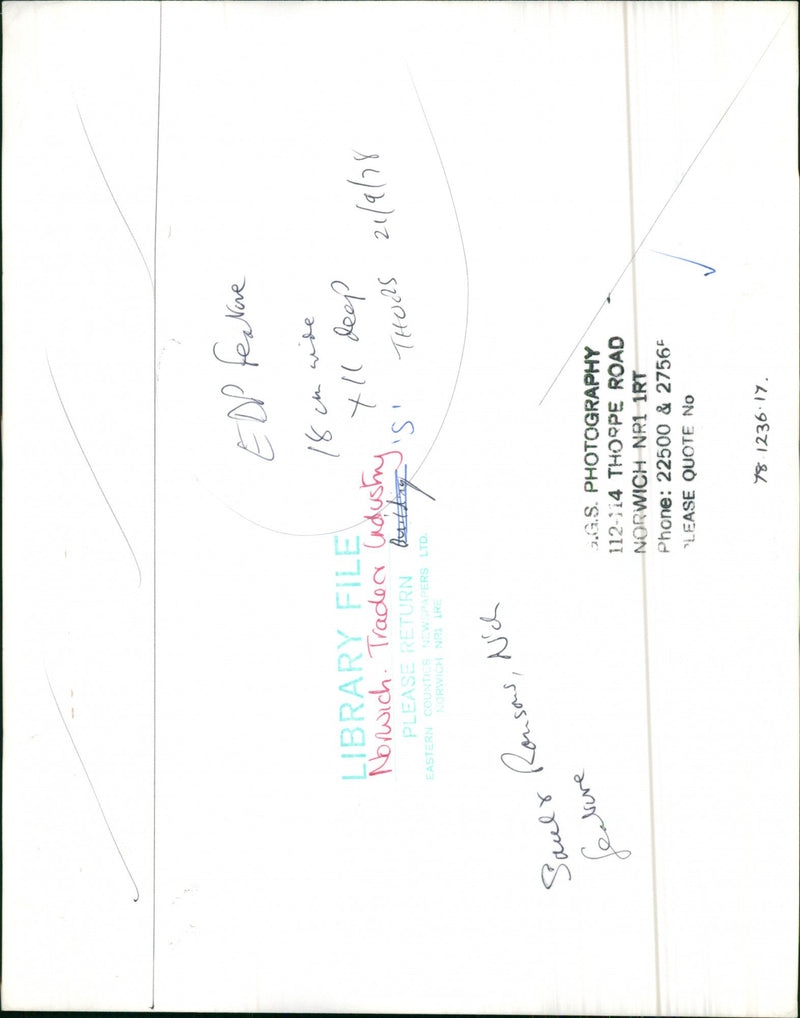 EDP Feature
18 cm wide
+ 11 deep
THURS 21/9/78
LIBRARY FILE
Norwich. Trade & Industry 'S'
Building
PLEASE RETURN
EASTERN COUNTIES NEWSPAPERS LTD.
NORWICH NR1 1RE
Ransons, N'ch
feature
.G.S. PHOTOGRAPHY
112-114 THORPE ROAD
NORWICH NR1 1RT
Phone: 22500 & 2756
LEASE QUOTE No
78.1236.17.